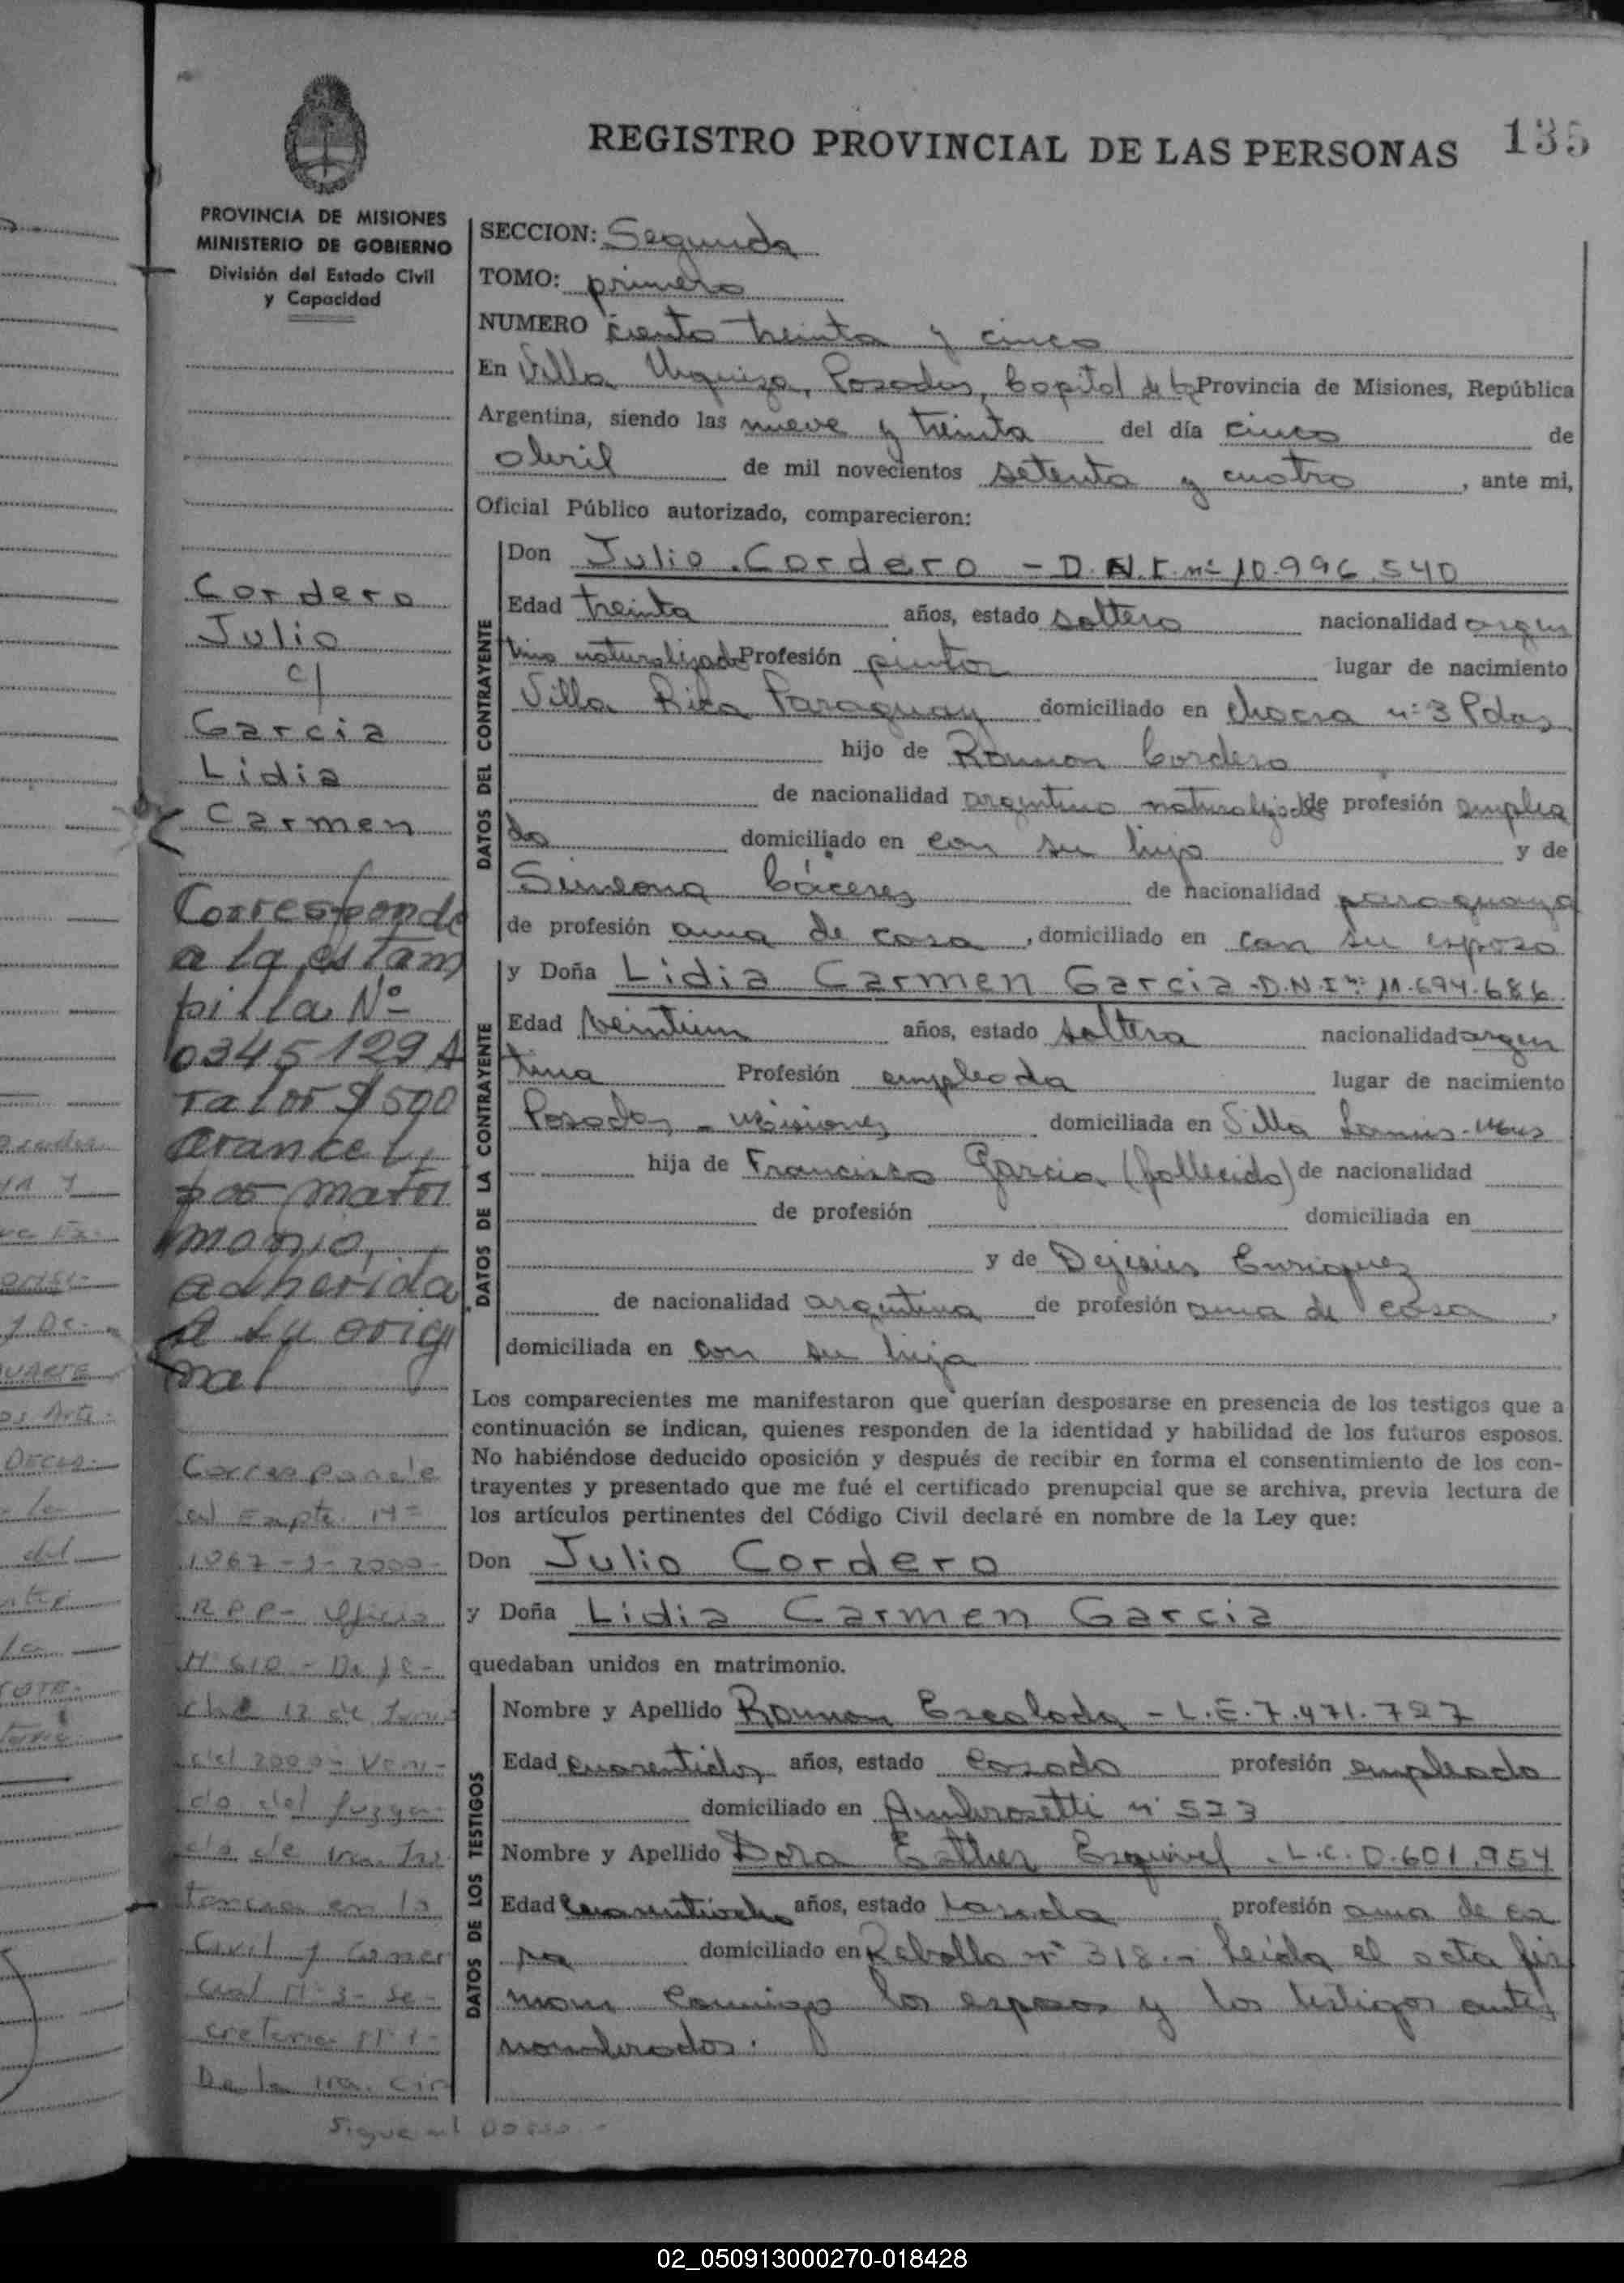 REGISTRO PROVINCIAL DE LAS PERSONAS 135
PROVINCIA DE MISIONES
MINISTERIO DE GOBIERNO
División del Estado Civil
y Capacidad
Cordero
Julio
c/
Garcia
Lidia
Carmen
Corresponde
a la estam
pilla Nº
0345129 A
Valor $ 500
arancel
por matri
monio,
adherida
a su origi
nal
Corresponde
al Expte. Nº
1067-J-2000-
RPP- Oficio
Nº 610 - De fe-
cha 12 de
del 2000 - Veni-
do del Juzga-
do de 1ra. Ins
tancia en lo
Civil y Comer
cial Nº 3 - Se-
cretaria Nº 1 -
De la 1ra. Cir
Sigue al Dorso.-
SECCION: Segunda
TOMO: primero
NUMERO ciento treinta y cinco
En Villa Urquiza, Posadas, Capital de la Provincia de Misiones, República
Argentina, siendo las nueve y treinta del día cinco de
abril de mil novecientos setenta y cuatro, ante mi,
Oficial Público autorizado, comparecieron:
DATOS DEL CONTRAYENTE
Don Julio Cordero - D.N.I. nº 10.996.540
Edad treinta años, estado soltero nacionalidad argen
tino naturalizado Profesión pintor lugar de nacimiento
Villa Rica Paraguay domiciliado en chacra nº 3 Pdas
hijo de Ramon Cordero
de nacionalidad argentino naturalizado de profesión emplea
do domiciliado en con su hijo y de
Simeona Cáceres de nacionalidad paraguaya
de profesión ama de casa, domiciliado en con su esposo
DATOS DE LA CONTRAYENTE
y Doña Lidia Carmen Garcia - D.N.I nº 11.694.686
Edad veintiun años, estado soltera nacionalidad argen
tina Profesión empleada lugar de nacimiento
Posadas - Misiones domiciliada en Villa Lanus - Mnes
hija de Francisco Garcia (fallecido) de nacionalidad
de profesión domiciliada en
y de Dejesús Enriquez
de nacionalidad argentina de profesión ama de casa,
domiciliada en con su hija
Los comparecientes me manifestaron que querían desposarse en presencia de los testigos que a
continuación se indican, quienes responden de la identidad y habilidad de los futuros esposos.
No habiéndose deducido oposición y después de recibir en forma el consentimiento de los con-
trayentes y presentado que me fué el certificado prenupcial que se archiva, previa lectura de
los artículos pertinentes del Código Civil declaré en nombre de la Ley que:
Don Julio Cordero
y Doña Lidia Carmen Garcia
quedaban unidos en matrimonio.
DATOS DE LOS TESTIGOS
Nombre y Apellido Ramon Escalada - L.E. 7.471.727
Edad cuarentidos años, estado casado profesión empleado
domiciliado en Ambrosetti nº 523
Nombre y Apellido Dora Esther Esquivel - L.C. 0.601.954
Edad cuarentiocho años, estado casada profesión ama de ca
sa domiciliado en Rebollo nº 318.- Leída el acta fir
man conmigo los esposos y los testigos antes
nombrados.
02_050913000270-018428